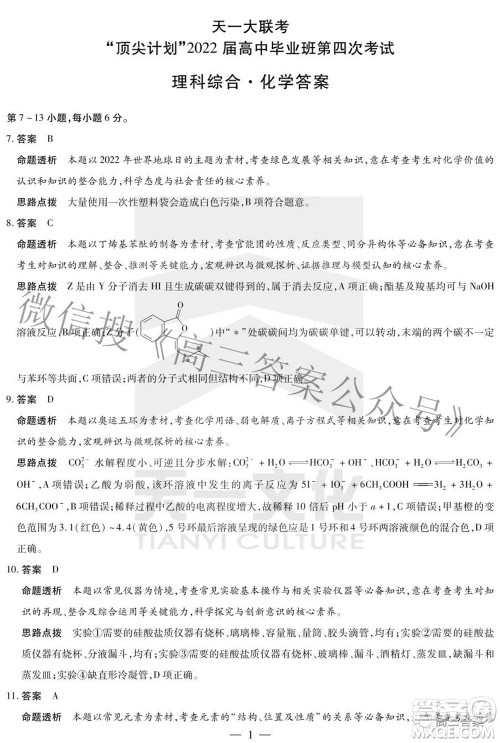 天一大联考
“顶尖计划”2022届高中毕业班第四次考试
理科综合·化学答案
第7~13小题,每小题6分。
7. 答案 B
命题透析 本题以2022年世界地球日的主题为素材,考查绿色发展等相关知识,意在考查考生对化学价值的
认识和知识的整合能力,科学态度与社会责任的核心素养。
思路点拨 大量使用一次性塑料袋会造成白色污染,B项符合题意。
8. 答案 C
命题透析 本题以丁烯基苯酞的制备为素材,考查官能团的性质、反应类型、同分异构体等必备知识,意在考
查考生对知识的理解、整合、推测等关键能力,宏观辨识与微观探析、证据推理与模型认知的核心素养。
思路点拨 Z是由Y分子消去HI且生成碳碳双键得到的,A项正确;酯基及羧基均可与NaOH
溶液反应,B项正确;
O
O
*
*
中“*”处碳碳间均为单键,可以自由转动,末端的两个碳不会始终
与苯环等共面,C项错误;两者的分子式相同但结构不同,D项正确。
9. 答案 D
命题透析 本题以奥运五环为素材,考查化学用语、弱电解质、离子方程式等相关知识,意在考查考生的整合
能力,宏观辨识与微观探析的核心素养。
思路点拨 CO₃²⁻水解程度小,可逆且分步水解:CO₃²⁻ + H₂O⇌HCO₃⁻ + OH⁻、HCO₃⁻ + H₂O⇌H₂CO₃ +
OH⁻,A项错误;乙酸为弱酸,该环境下的离子反应为5I⁻ + IO₃⁻ + 6CH₃COOH══3I₂ + 3H₂O +
6CH₃COO⁻,B项错误;稀释过程中乙酸仍大量电离出氢离子,故稀释10倍后pH小于a+1,C项错误;甲基橙的变
色范围为3.1(红色)~4.4(黄色),5号环最后显示的应是红色和黄色的混合色,D项
正确。
10. 答案 D
命题透析 本题以常见仪器为情境,考查常见实验基本操作与相关仪器等必备知识,意在考查考生的实验整
合及综合运用等关键能力,科学探究与创新意识的核心素养。
思路点拨 实验①需要的硅酸盐质仪器有烧杯、玻璃棒、容量瓶、量筒、胶头滴管,均有;实验②需要的硅酸
盐质仪器有烧杯、分液漏斗,均有;实验③需要的硅酸盐质仪器有烧杯、玻璃棒、酒精灯、蒸发皿、普通漏斗,
均有;实验④缺直形冷凝管,D项正确。
11. 答案 A
命题透析 本题以元素推断为素材,考查元素的“结构、位置及性质”的关系等必备知识,意在考查考生的
— 1 —
微信搜《高三答案公众号》
天一文化
TIANYI CULTURE